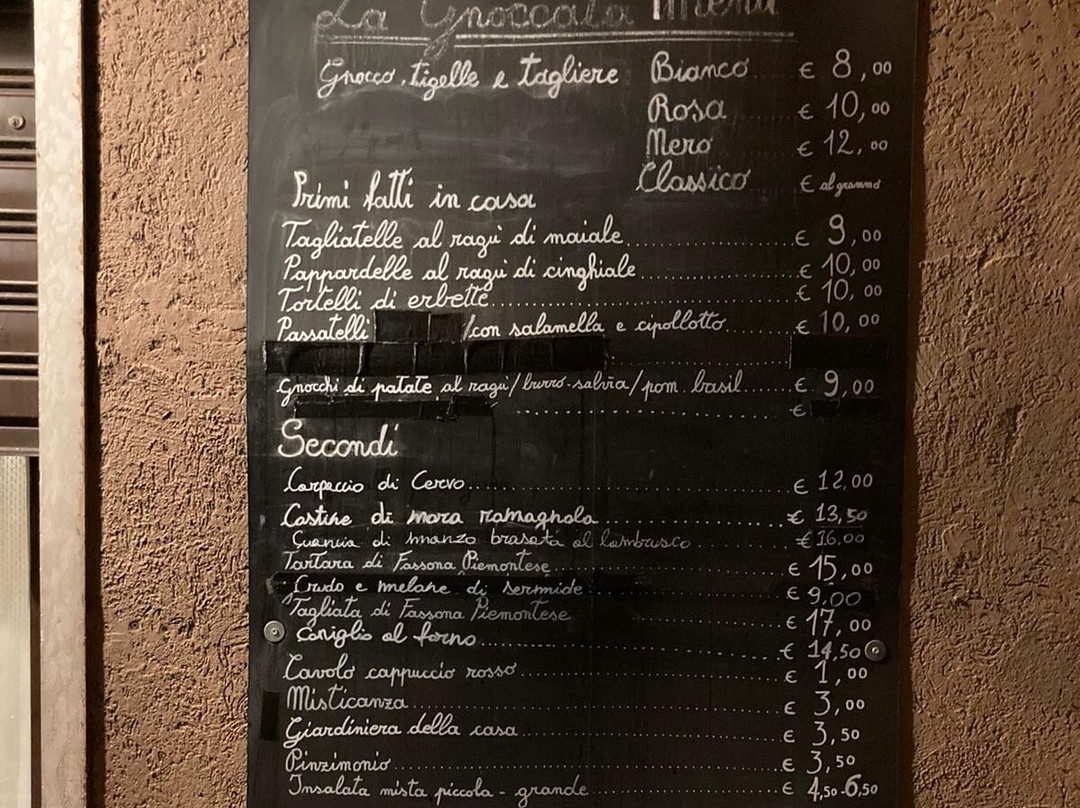 La Gnoccata Menu
Gnocco, tigelle e tagliere Bianco € 8,00
Rosa € 10,00
Nero € 12,00
Classico € al grammo
Primi fatti in casa
Tagliatelle al ragù di maiale € 9,00
Pappardelle al ragù di cinghiale € 10,00
Tortelli di erbette € 10,00
Passatelli /con salamella e cipollotto € 10,00
Gnocchi di patate al ragù/burro-salvia/pom. basil € 9,00
€
Secondi
Carpaccio di Cervo € 12,00
Costine di mora romagnola € 13,50
Guancia di manzo brasata al lambrusco € 16,00
Tartara di Fassona Piemontese € 15,00
Crudo e melone di sermide € 9,00
Tagliata di Fassona Piemontese € 17,00
Coniglio al forno € 14,50
Cavolo cappuccio rosso € 1,00
Misticanza € 3,00
Giardiniera della casa € 3,50
Pinzimonio € 3,50
Insalata mista piccola - grande € 4,50-6,50